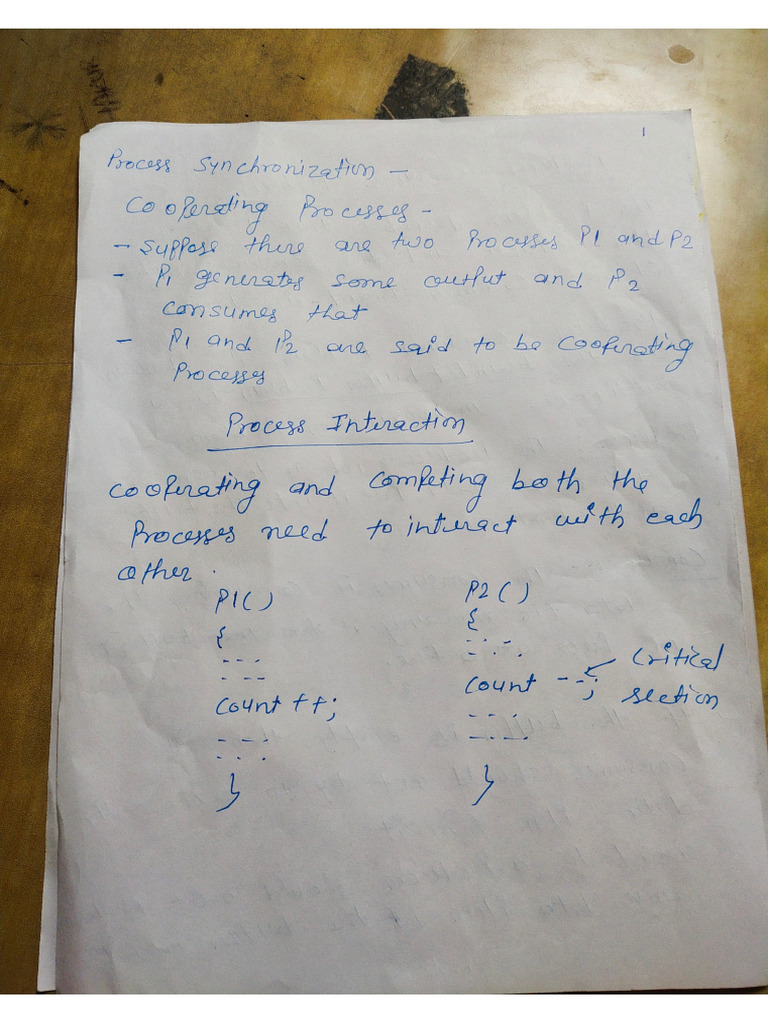 1
Process Synchronization -
Cooperating Processes -
- Suppose there are two Processes P1 and P2
- P1 generates some output and P2
consumes that
- P1 and P2 are said to be cooperating
Processes
Process Interaction
Cooperating and Competing both the
Processes need to interact with each
other.
P1() P2()
{ {
---- --.-.
---- --.-.
count ++; count --; ← Critical section
---- ----
---- ----
} }